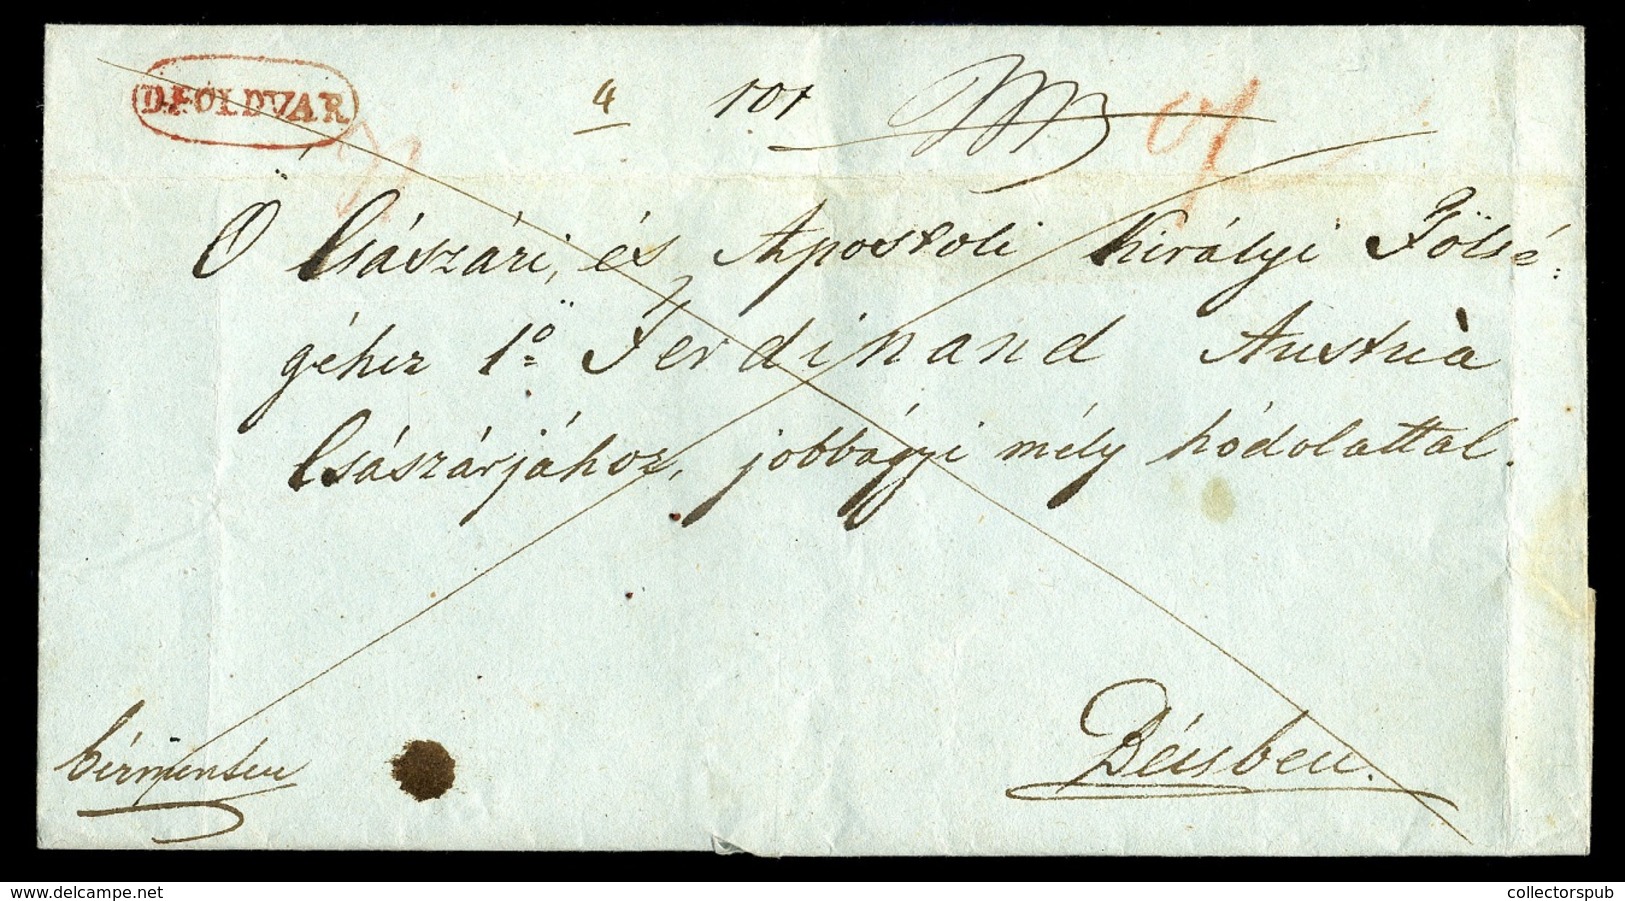 D.FÖLDVAR
4 101
Ö Császári, és Apostoli Királyi Fölsé:
géhez 1º Ferdinand Austria
Császárjához, jobbágyi mély hódolattal.
bérmentén
Bécsben.
collectorspub